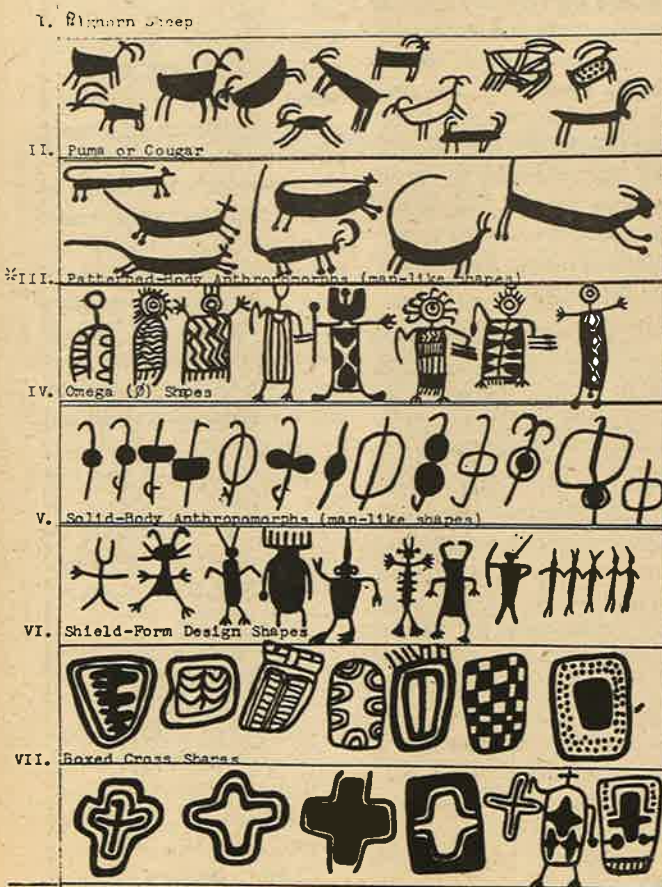 I. Bighorn Sheep
II. Puma or Cougar
*III. Patterned-Body Anthropomorphs (man-like shapes)
IV. Omega (Ø) Shpes
V. Solid-Body Anthropomorphs (man-like shapes)
VI. Shield-Form Design Shapes
VII. Boxed Cross Shapes